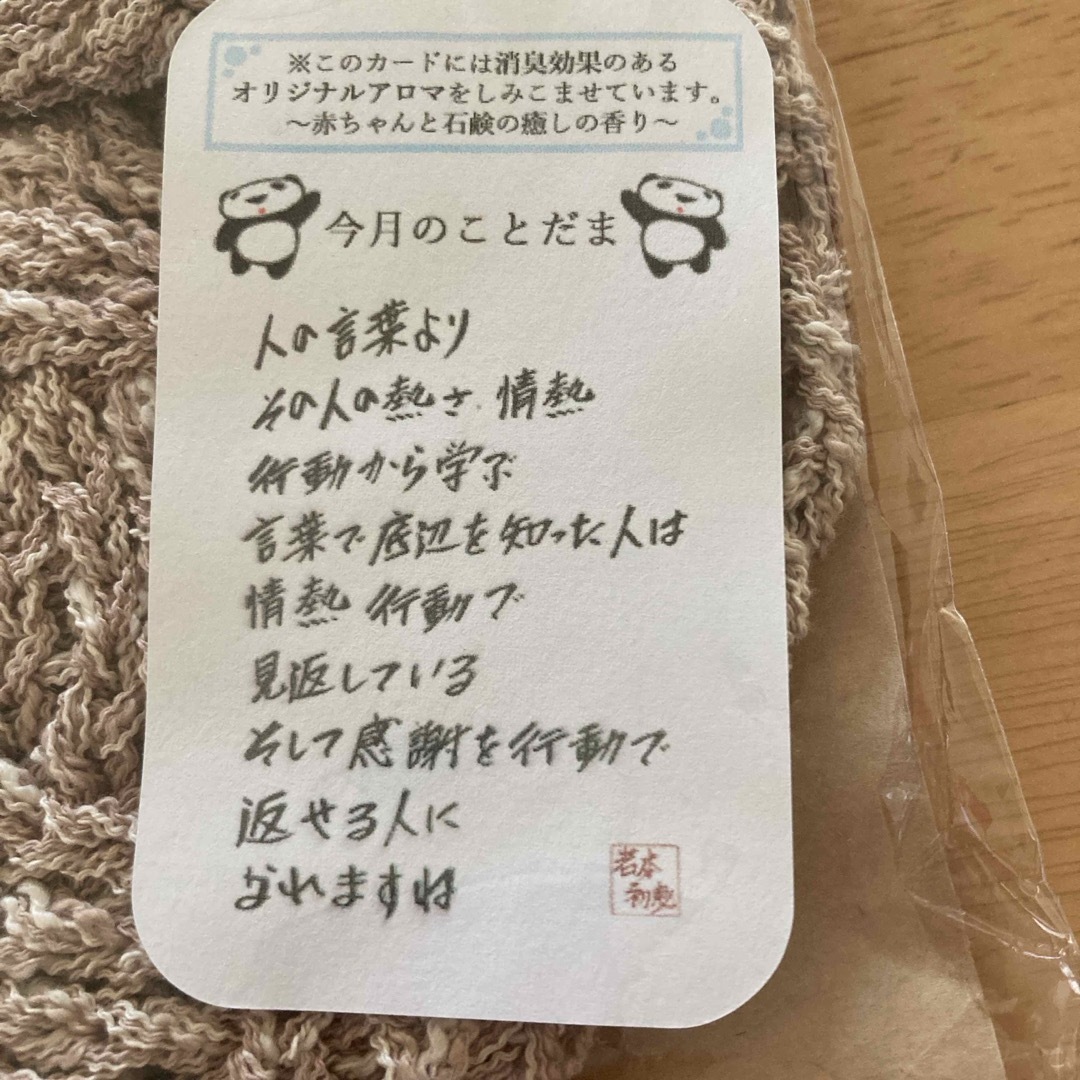 ※このカードには消臭効果のある
オリジナルアロマをしみこませています。
～赤ちゃんと石鹸の癒しの香り～
今月のことだま
人の言葉より
その人の熱さ、情熱
行動から学ぶ
言葉で底辺を知った人は
情熱 行動で
見返している
そして感謝を行動で
返せる人に
なれますね
若本
初